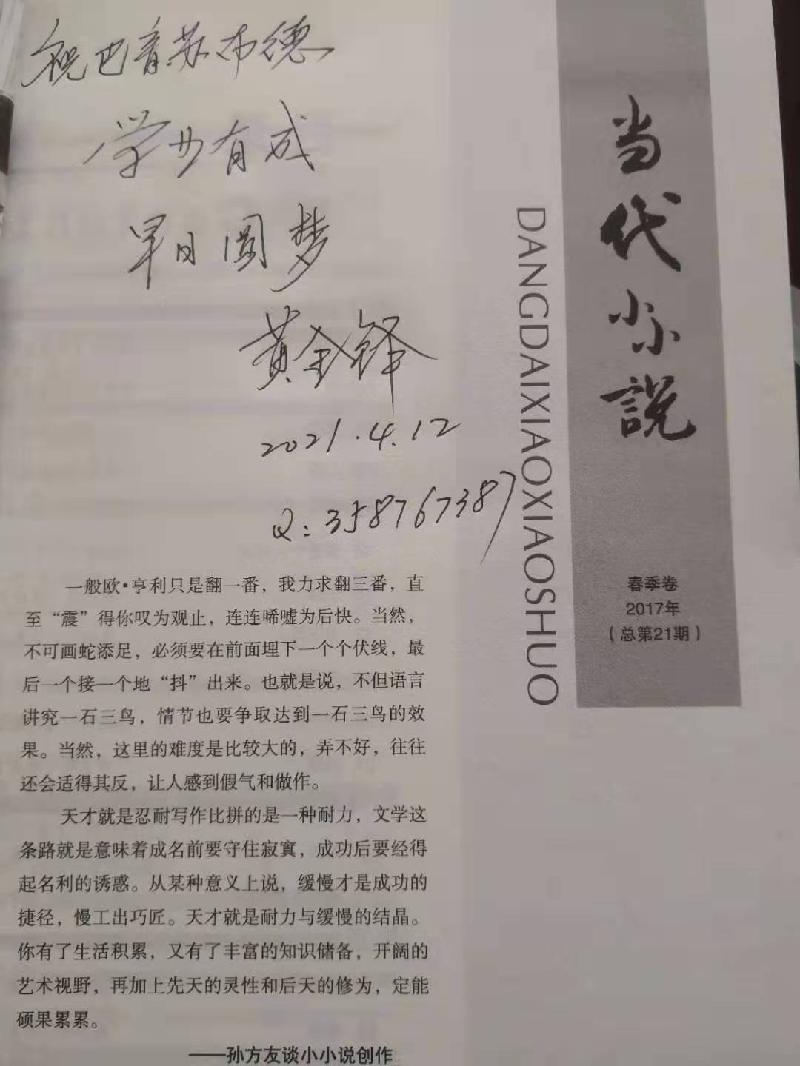 祝巴音苏布德
学业有成
早日圆梦
黄全铎
2021.4.12
Q:358767387
当代小小说
DANGDAIXIAOXIAOSHUO
春季卷
2017年
(总第21期)
一般欧·亨利只是翻一番,我力求翻三番,直
至“震”得你叹为观止,连连唏嘘为后快。当然,
不可画蛇添足,必须要在前面埋下一个个伏线,最
后一个接一个地“抖”出来。也就是说,不但语言
讲究一石三鸟,情节也要争取达到一石三鸟的效
果。当然,这里的难度是比较大的,弄不好,往往
还会适得其反,让人感到假气和做作。
天才就是忍耐写作比拼的是一种耐力,文学这
条路就是意味着成名前要守住寂寞,成功后要经得
起名利的诱惑。从某种意义上说,缓慢才是成功的
捷径,慢工出巧匠。天才就是耐力与缓慢的结晶。
你有了生活积累,又有了丰富的知识储备,开阔的
艺术视野,再加上先天的灵性和后天的修为,定能
硕果累累。
——孙方友谈小小说创作